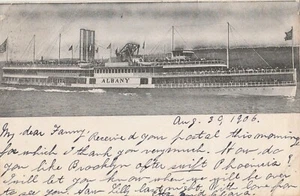 ALBANY
Aug. 29, 1906.
My dear Fanny. Received your postal this morning
for which I thank you very much. How do
you like Brooklyn after swift Phoenicia?
I will let you know when we will be over
to see you. Saw Lill last night.